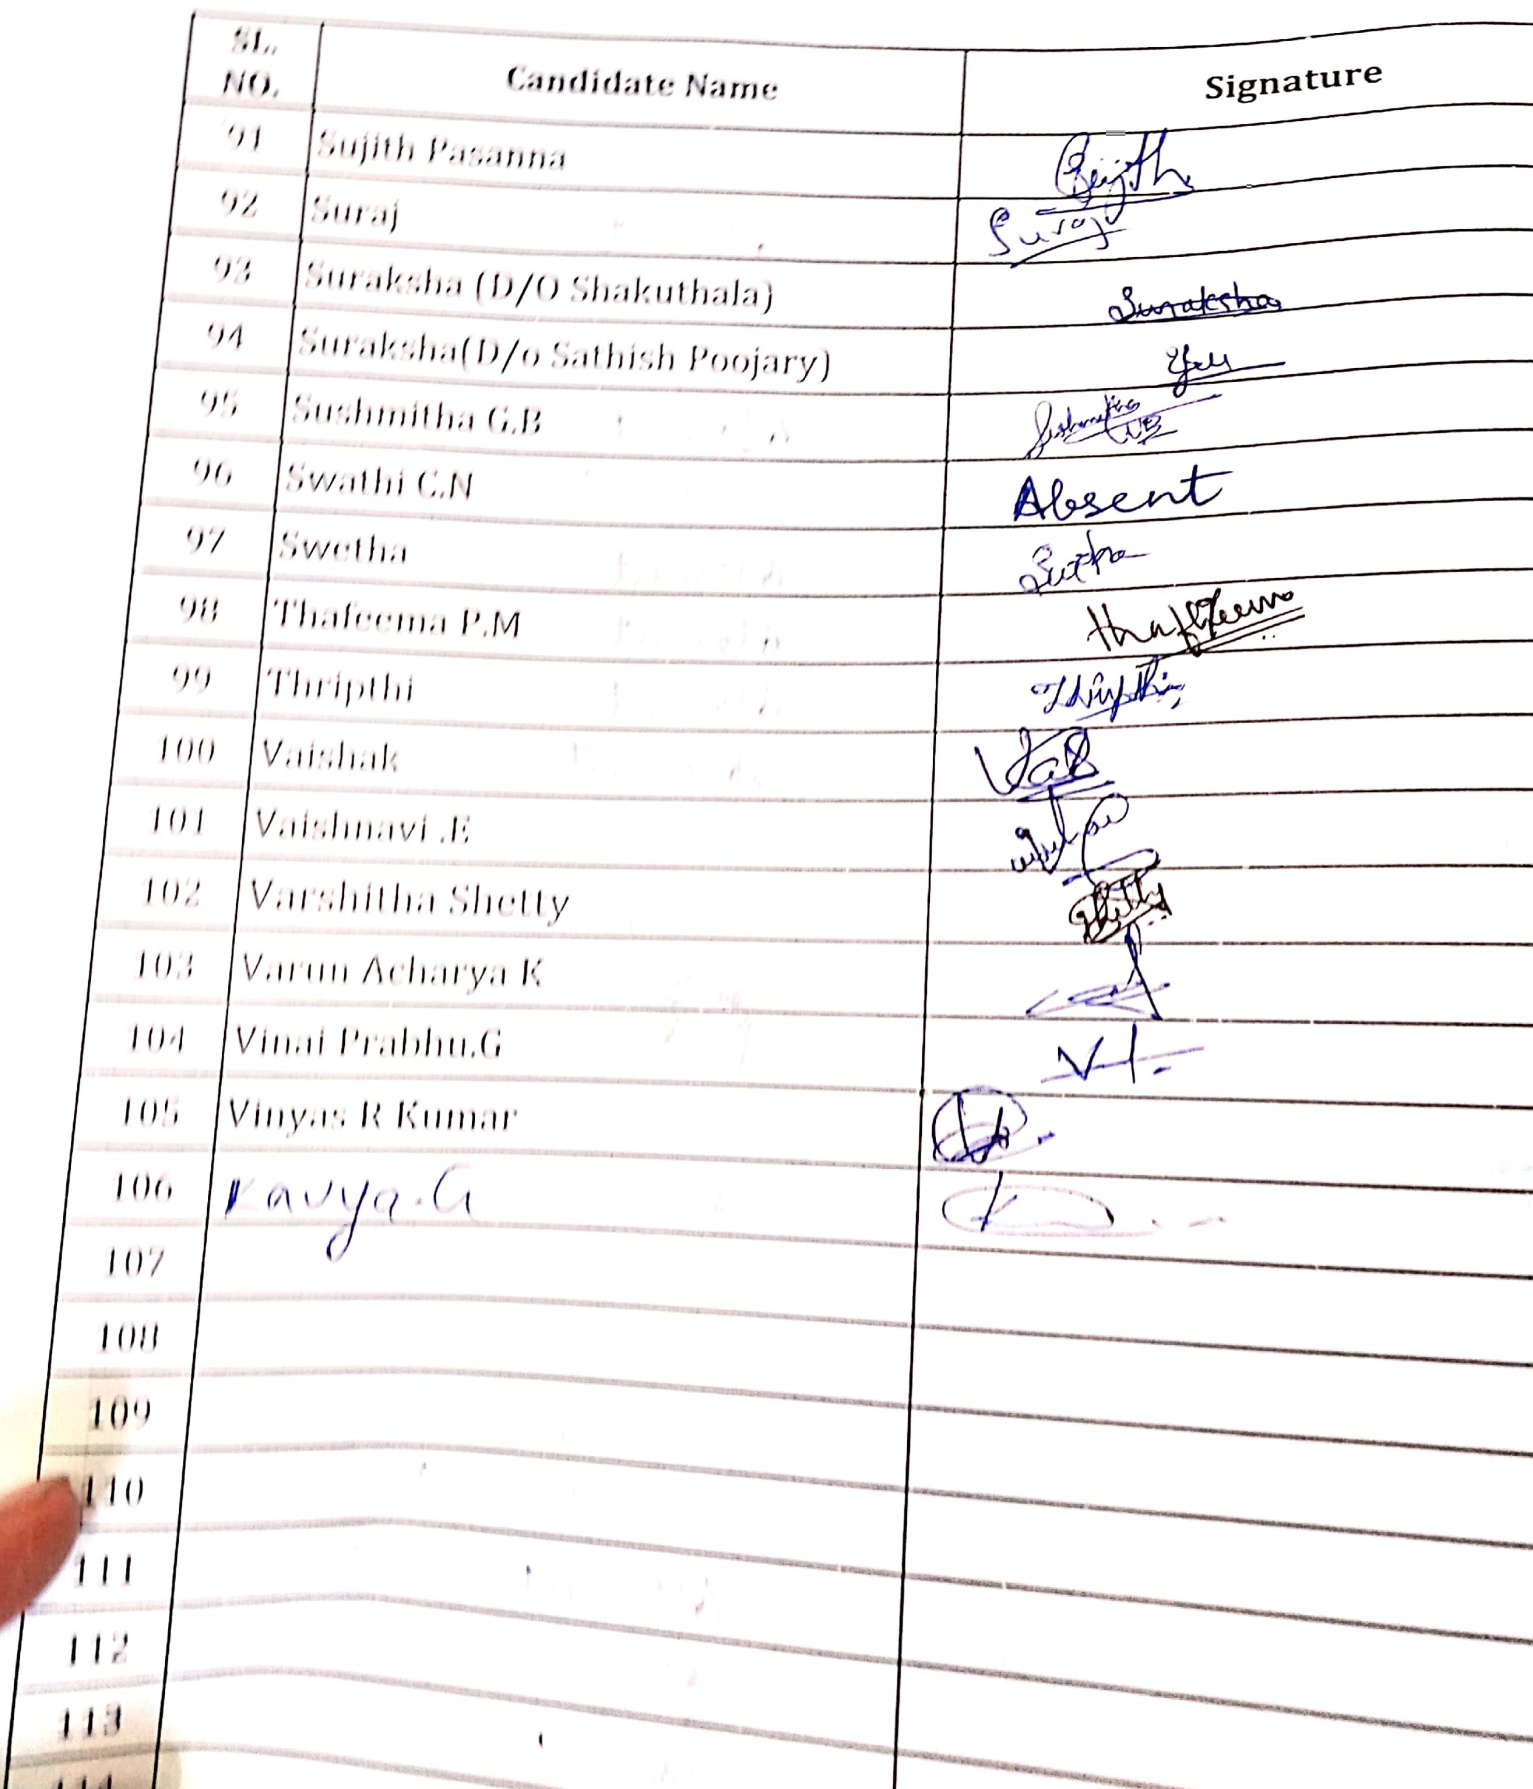 SL. NO. Candidate Name Signature
91 Sujith Pasanna
92 Suraj Suraj
93 Suraksha (D/O Shakuthala) Suraksha
94 Suraksha(D/o Sathish Poojary)
95 Sushmitha G.B
96 Swathi C.N Absent
97 Swetha
98 Thafeema P.M
99 Thripthi Thripthi
100 Vaishak
101 Vaishnavi .E
102 Varshitha Shetty
103 Varun Acharya K
104 Vinai Prabhu.G
105 Vinyas R Kumar
106 Kavya.G
107
108
109
110
111
112
113